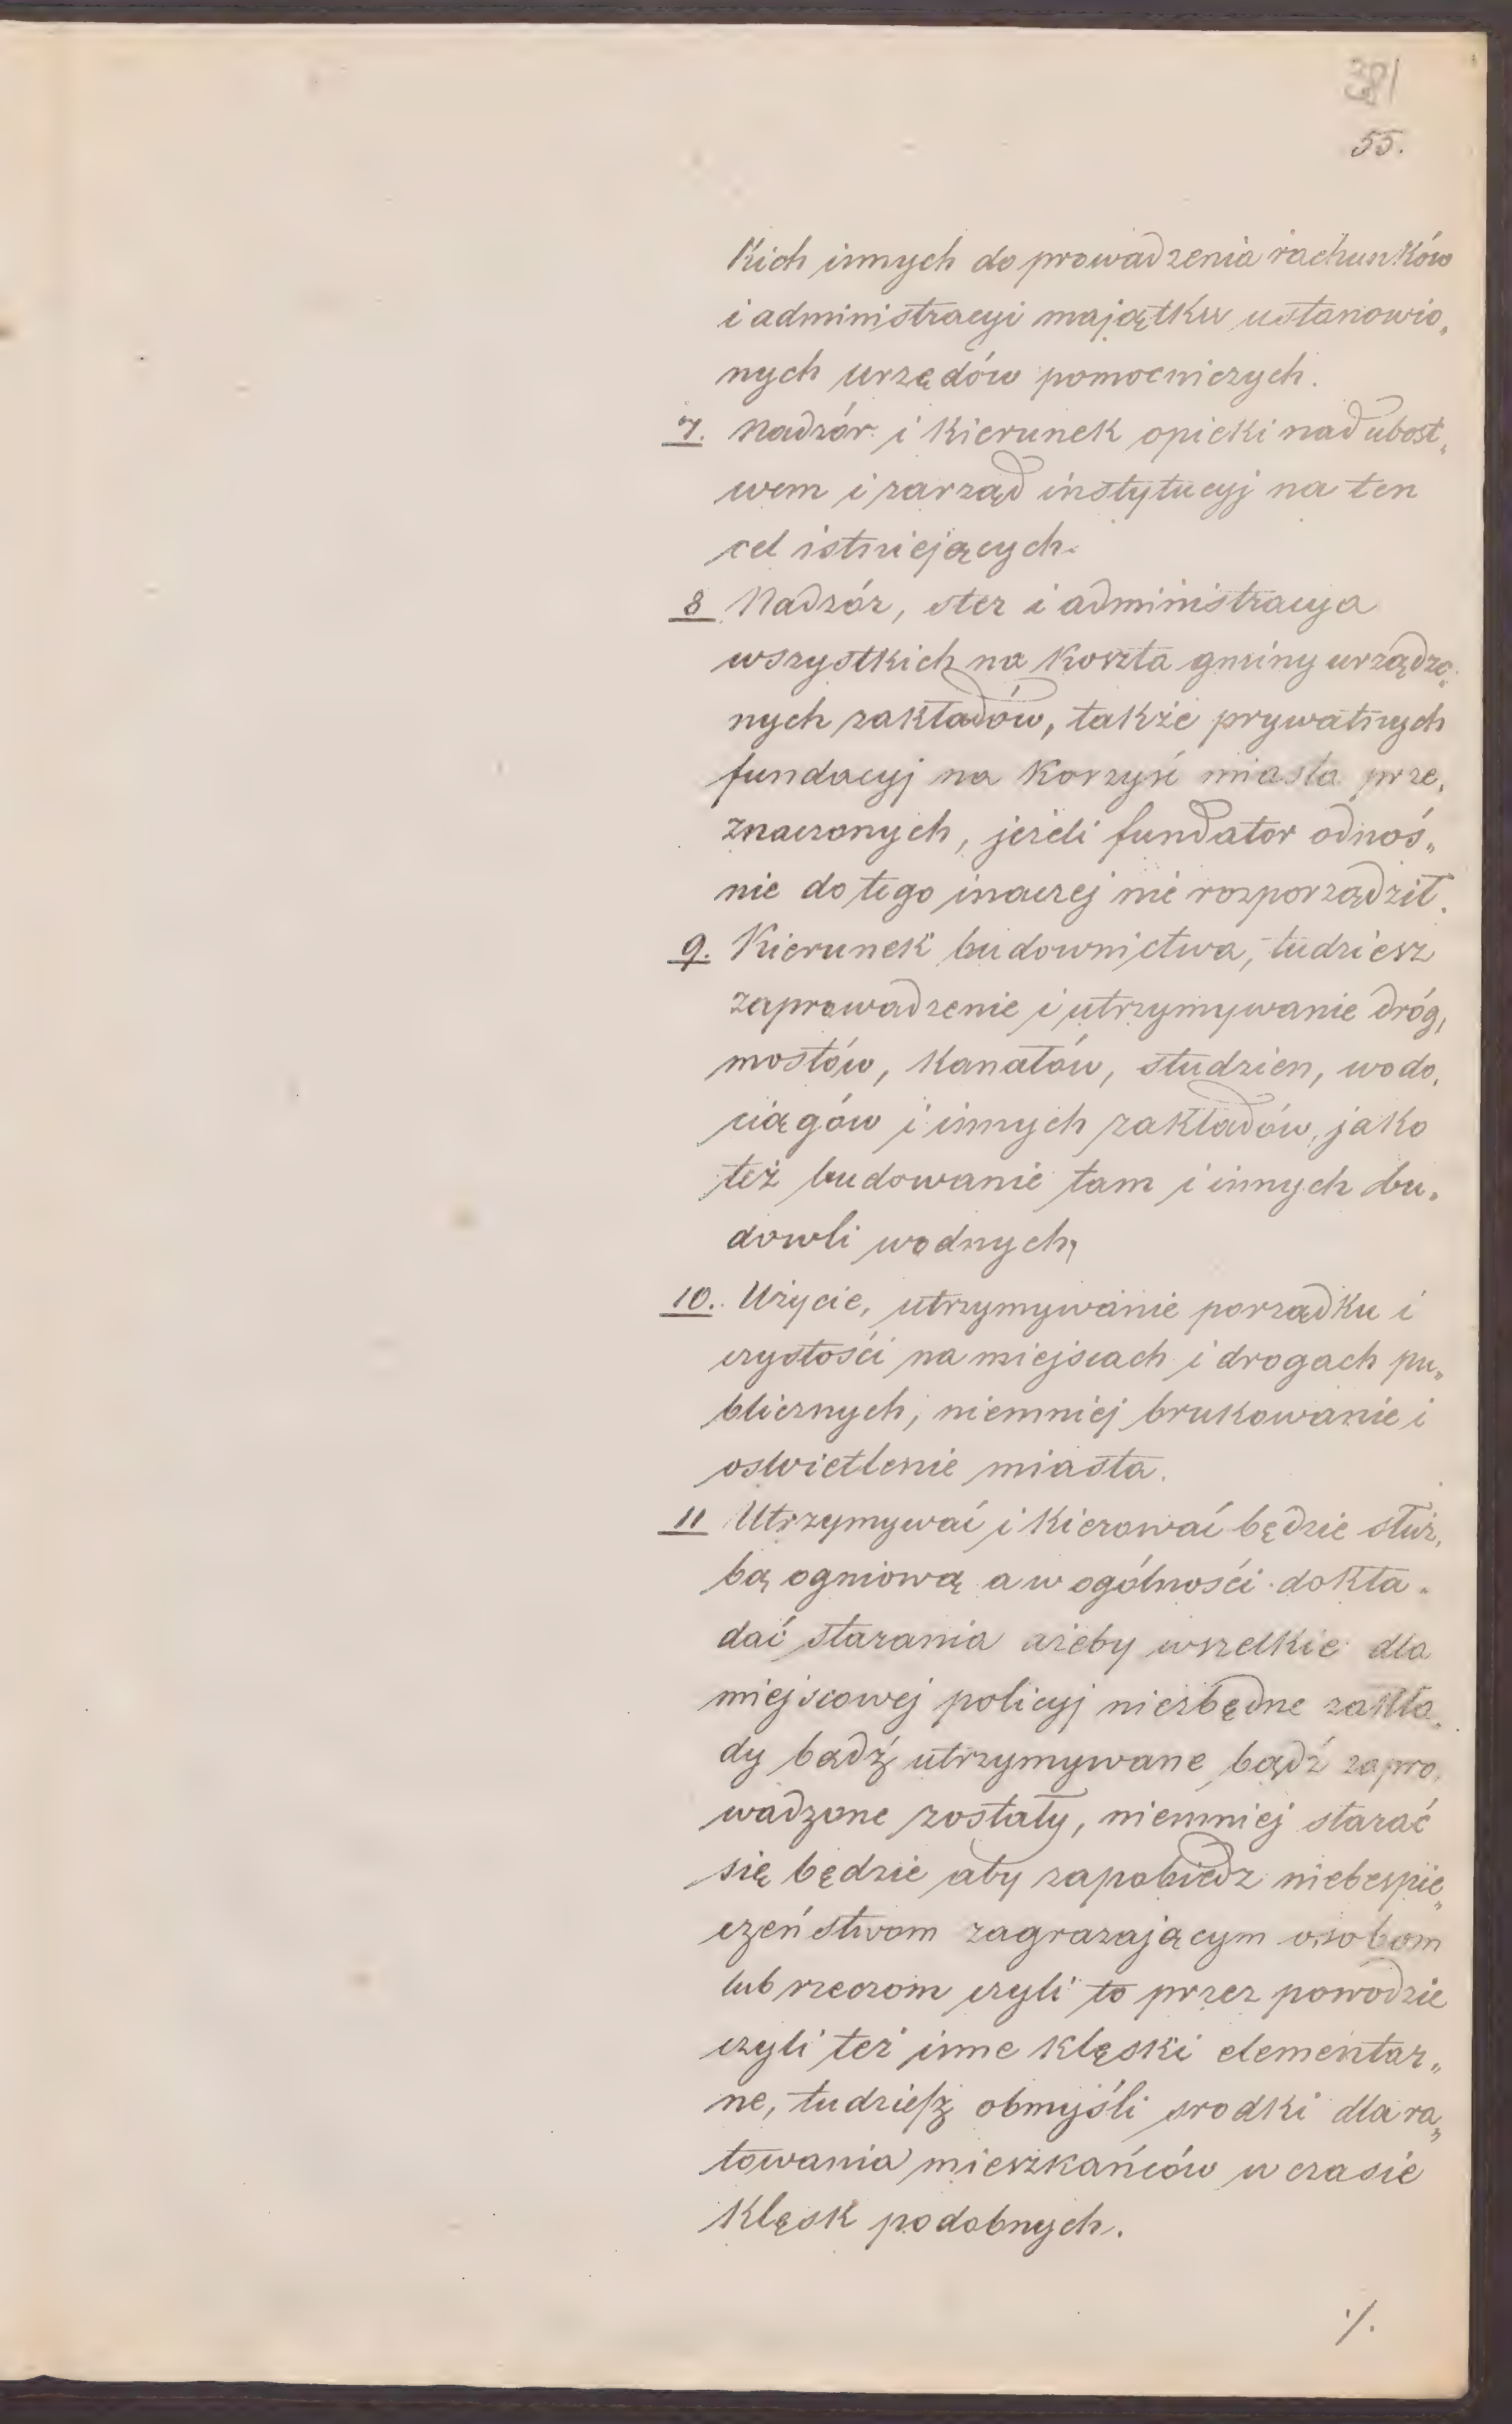 381
55.
kich innych do prowadzenia rachunków
i administracyi majątku ustanowio„
nych urzędów pomocniczych.
7. Nadzór i kierunek opieki nad ubost„
wem i zarząd instytucyj na ten
cel istniejących.
8 Nadzór, ster i administracya
wszystkich na koszta gminy urządzo„
nych zakładów, także prywatnych
fundacyj na korzyść miasta prze„
znaczonych, jeżeli fundator odnoś„
nie do tego inaczej nie rozporządził.
9. Kierunek budownictwa, tudziesz
zaprowadzenie i utrzymywanie dróg,
mostów, kanałów, studzien, wodo„
ciągów i innych zakładów, jako
też budowanie tam i innych bu„
dowli wodnych,
10. Użycie, utrzymywanie porządku i
czystości na miejscach i drogach pu„
blicznych, niemniej brukowanie i
oswietlenie miasta.
11 Utrzymywać i kierować będzie służ„
bą ogniową a w ogólności dokła„
dać starania ażeby wszelkie dla
miejscowej policyj niezbędne zakła„
dy bądź utrzymywane bądź zapro„
wadzone zostały, niemniej starać
się będzie aby zapobiedz niebezpie„
czeństwom zagrażającym osobom
lub rzeczom czyli to przez powodzie
czyli też inne klęski elementar„
ne, tudzieſz obmyśli srodki dla ra„
towania mieszkańców w czasie
klęsk podobnych.
·/.